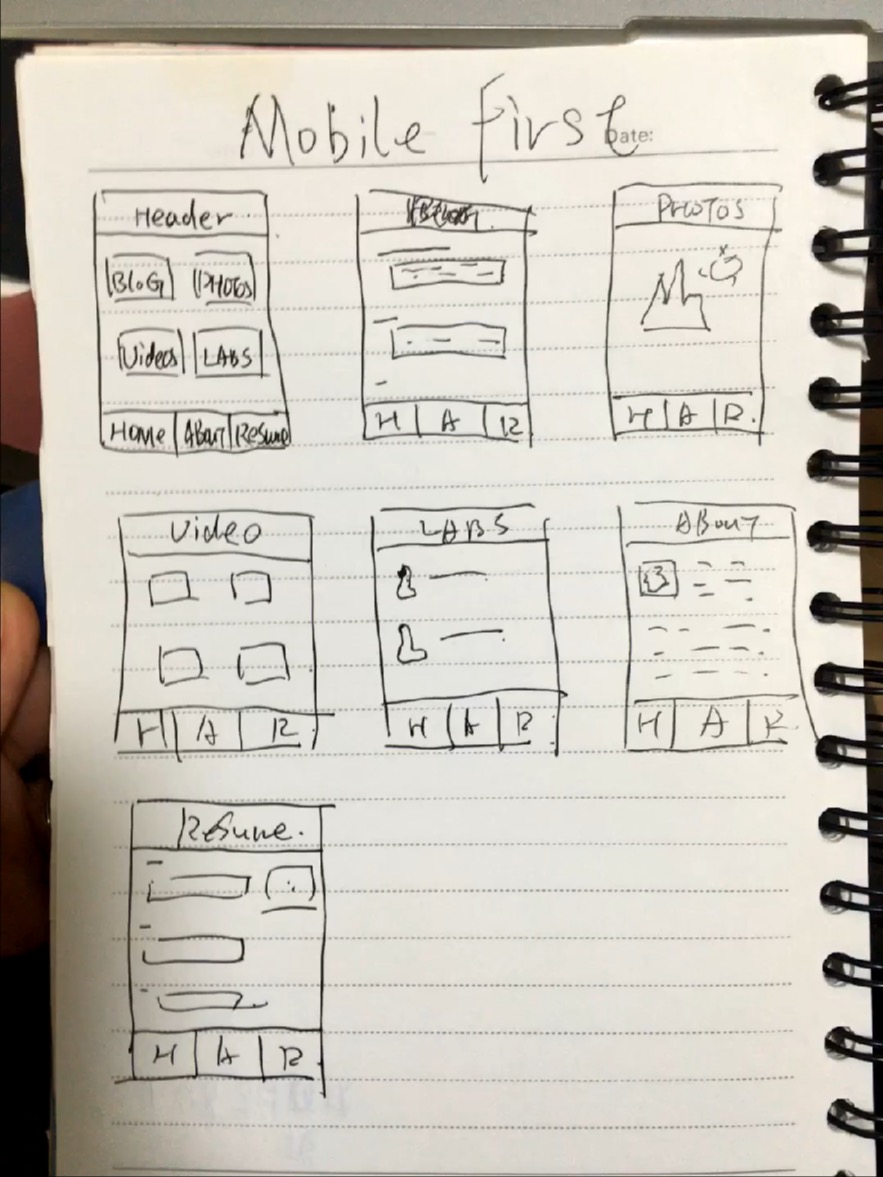 Mobile first
Date:
Header
BLOG PHOTOS
Videos LABS
Home ABout Resume
H A R
PHOTOS
H A R
Video
H A R
LABS
H A R
ABout
H A R
Resume.
H A R